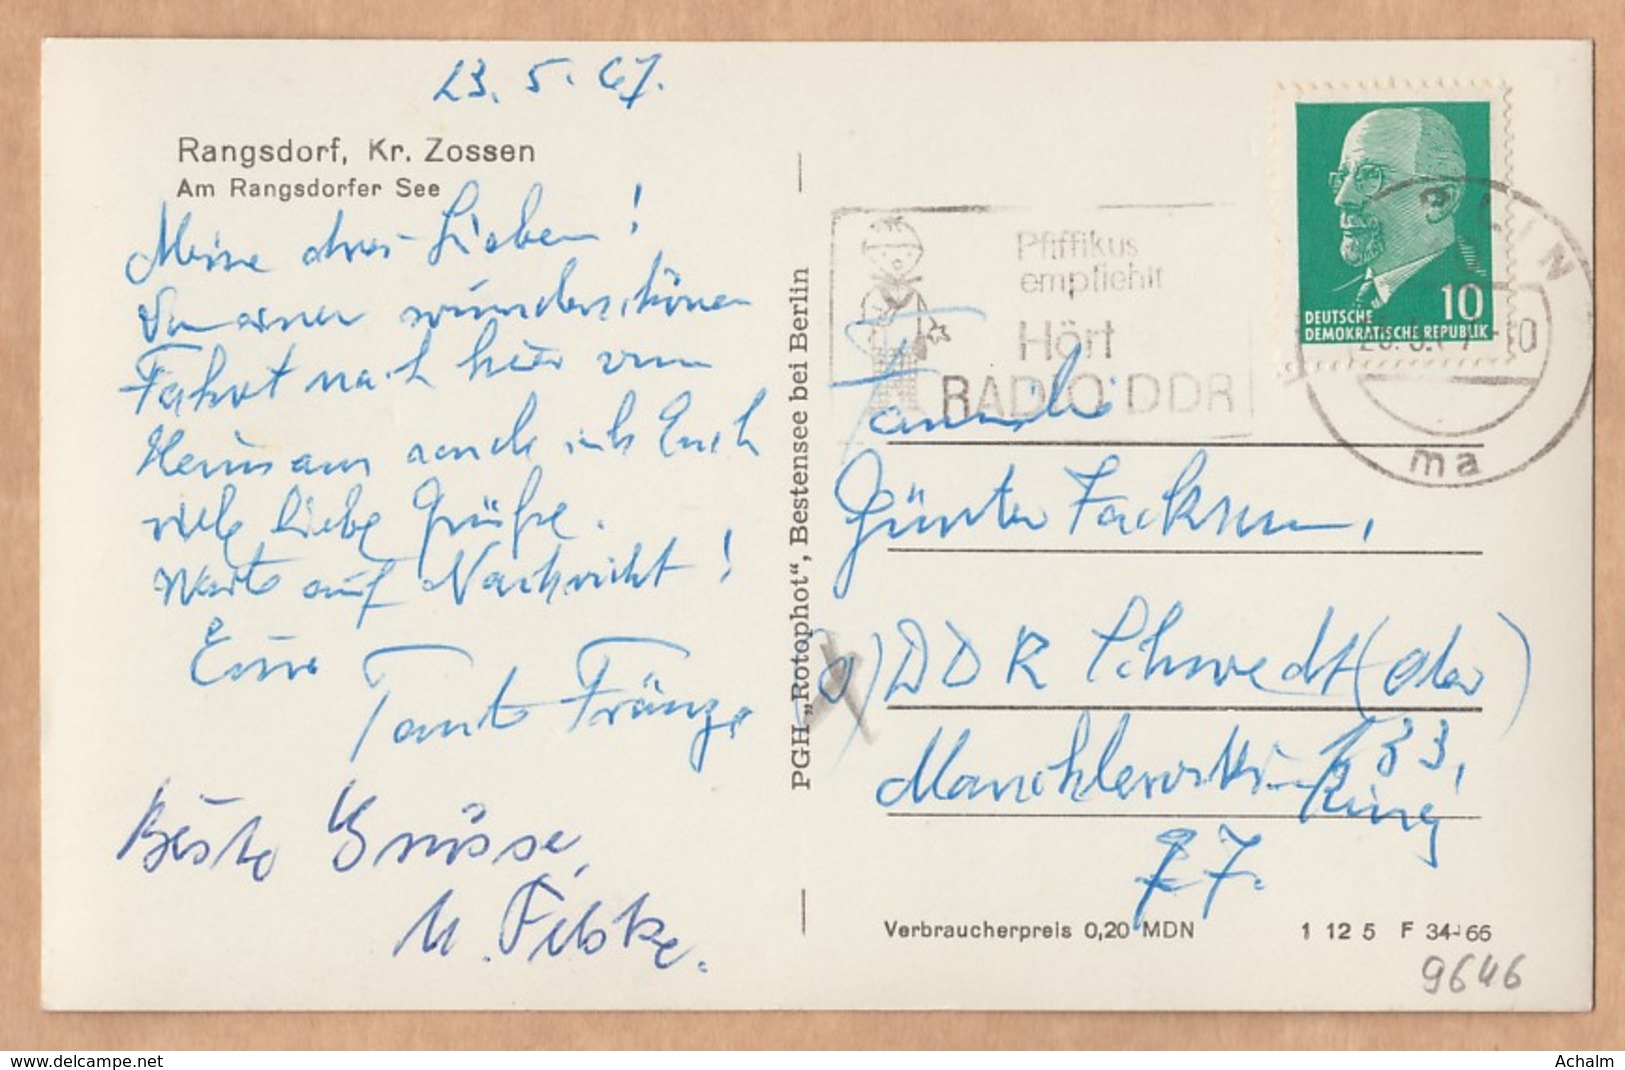 23. 5. 67.
Rangsdorf, Kr. Zossen
Am Rangsdorfer See
Meine drei Lieben!
Von einer wunderschönen
Fahrt nach hier von
auch ich Euch
viele liebe Grüße.
Warte auf Nachricht!
Eure
Tante Fränze
Beste Grüsse,
PGH „Rotophot“, Bestensee bei Berlin
Pfiffikus
empfiehlt
Hört
RADIO DDR
10
DEUTSCHE
DEMOKRATISCHE REPUBLIK
BERLIN
ma
Familie
Günter
DDR Schwedt (Oder)
133,
Ring
77.
Verbraucherpreis 0,20 MDN 1 12 5 F 34-66
9646
www.delcampe.net
Achalm